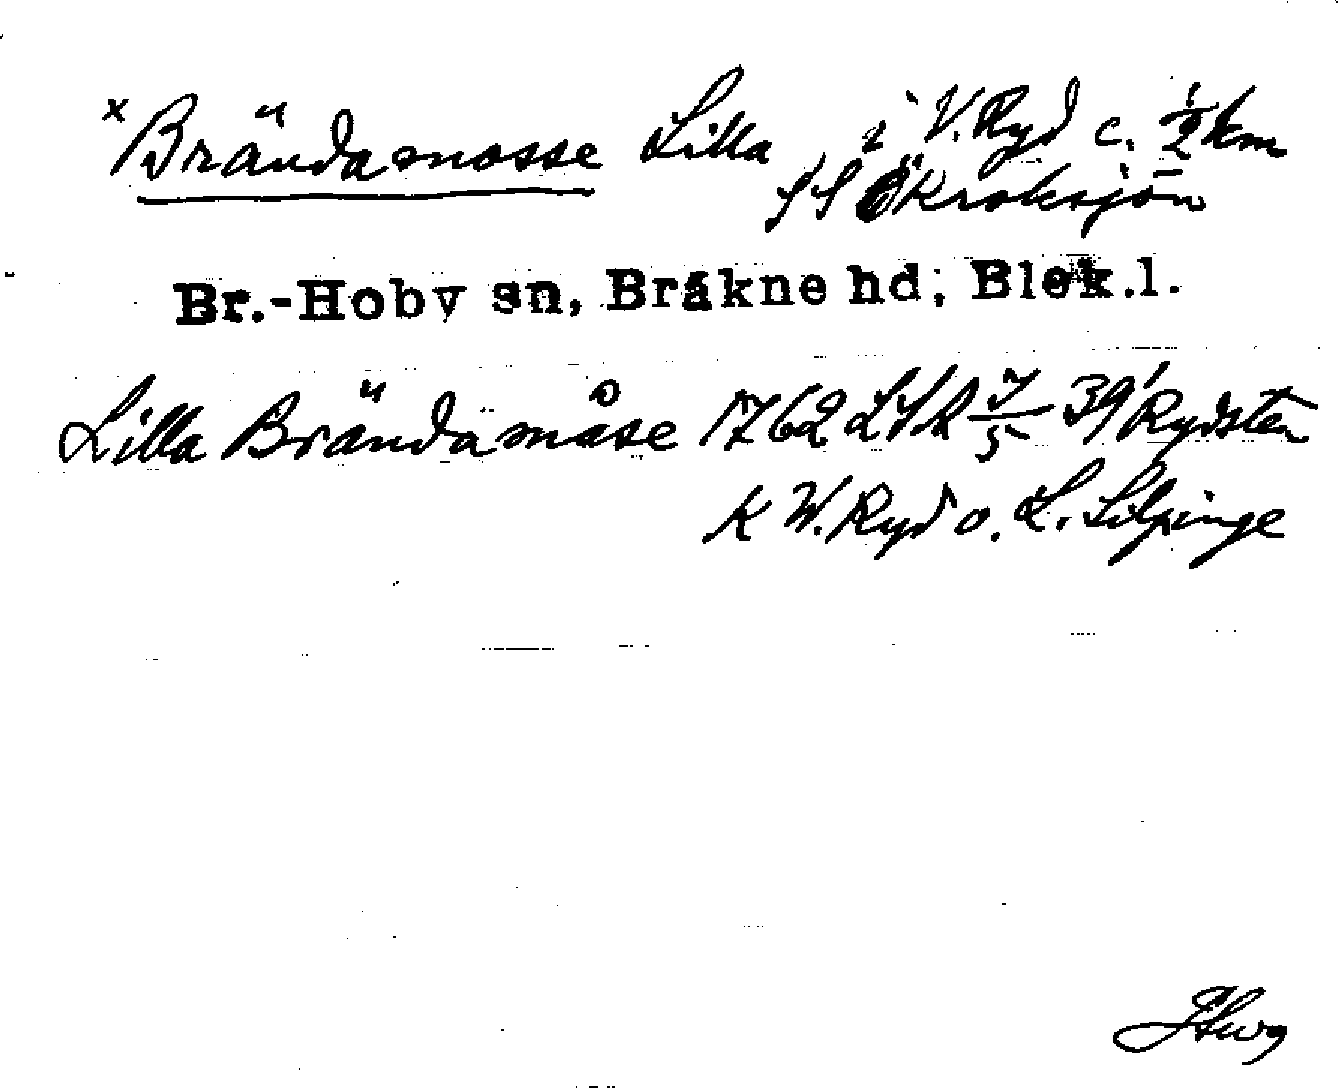 x Brändamosse Lilla i V. Ryd c. ½ km
SS Ö Kroksjön
Br.-Hoby sn, Bräkne hd, Blek.l.
Lilla Brändamåse 1762 LSA 39' Rydsten
K W. Ryd o. L. Silpinge